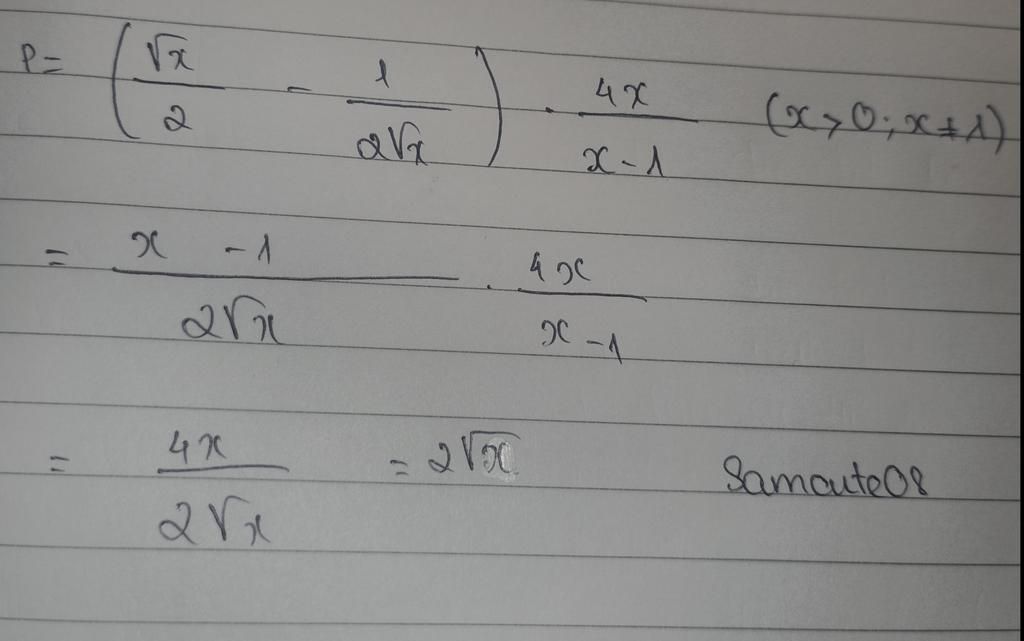 P = ( √x / 2 - 1 / 2√x ) . 4x / x - 1 (x > 0 ; x ≠ 1)
= x - 1 / 2√x . 4x / x - 1
= 4x / 2√x = 2√x Samoute08